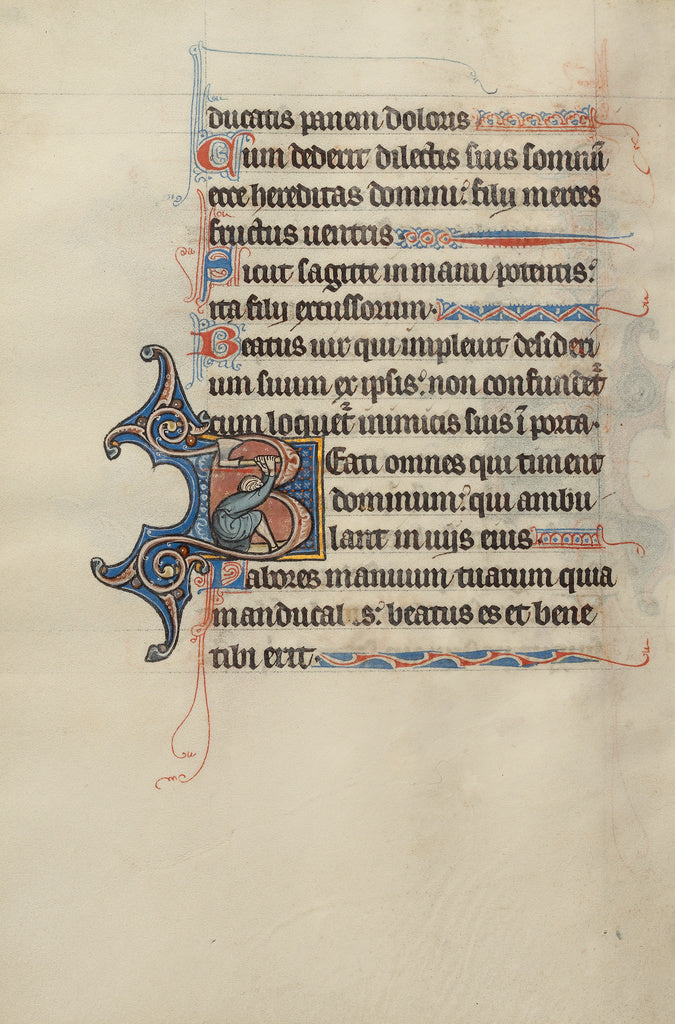 ducatis panem doloris
Cum dederit dilectis suis somnū
ecce hereditas domini: filij merces
fructus uentris
Sicut sagitte in manu potentis:
ita filij excussorum.
Beatus uir qui impleuit desideri
um suum ex ipsis: non confundet᷑
cum loquet᷑ inimicis suis ī porta.
Beati omnes qui timent
dominum: qui ambu
lant in uijs eius
Labores manuum tuarum quia
manducabis: beatus es et bene
tibi erit.